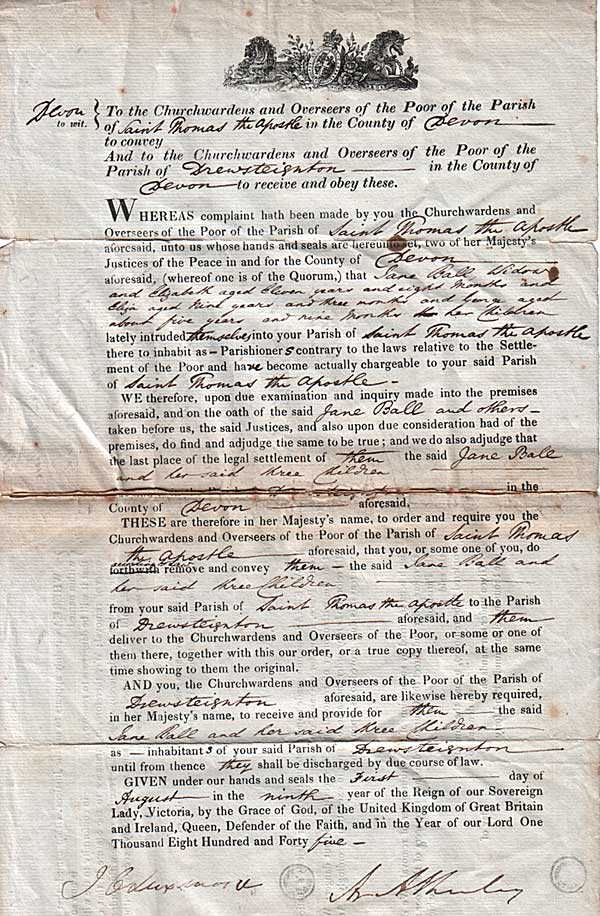 Devon
to wit.
To the Churchwardens and Overseers of the Poor of the Parish
of Saint Thomas the Apostle in the County of Devon
to convey
And to the Churchwardens and Overseers of the Poor of the
Parish of Drewsteignton in the County of
Devon to receive and obey these.
WHEREAS complaint hath been made by you the Churchwardens and
Overseers of the Poor of the Parish of Saint Thomas the Apostle
aforesaid, unto us whose hands and seals are hereunto set, two of her Majesty's
Justices of the Peace in and for the County of Devon
aforesaid, (whereof one is of the Quorum,) that Jane Ball Widow
and Elizabeth aged Eleven years and eight Months and
Eliza aged Nine years and three months and George aged
about five years and nine Months her Children
lately intruded themselves into your Parish of Saint Thomas the Apostle
there to inhabit as - Parishioners contrary to the laws relative to the Settle-
ment of the Poor and have become actually chargeable to your said Parish
of Saint Thomas the Apostle -
WE therefore, upon due examination and inquiry made into the premises
aforesaid, and on the oath of the said Jane Ball and others -
taken before us, the said Justices, and also upon due consideration had of the
premises, do find and adjudge the same to be true; and we do also adjudge that
the last place of the legal settlement of them the said Jane Ball
and her said three Children
in the
County of Devon aforesaid,
THESE are therefore in her Majesty's name, to order and require you the
Churchwardens and Overseers of the Poor of the Parish of Saint Thomas
the Apostle aforesaid, that you, or some one of you, do
forthwith remove and convey them - the said Jane Ball and
her said three Children
from your said Parish of Saint Thomas the Apostle to the Parish
of Drewsteignton aforesaid, and them
deliver to the Churchwardens and Overseers of the Poor, or some or one of
them there, together with this our order, or a true copy thereof, at the same
time showing to them the original.
AND you, the Churchwardens and Overseers of the Poor of the Parish of
Drewsteignton aforesaid, are likewise hereby required,
in her Majesty's name, to receive and provide for them the said
Jane Ball and her said three Children
as - inhabitants of your said Parish of Drewsteignton
until from thence they shall be discharged by due course of law.
GIVEN under our hands and seals the First day of
August in the ninth year of the Reign of our Sovereign
Lady, Victoria, by the Grace of God, of the United Kingdom of Great Britain
and Ireland, Queen, Defender of the Faith, and in the Year of our Lord One
Thousand Eight Hundred and Forty five -